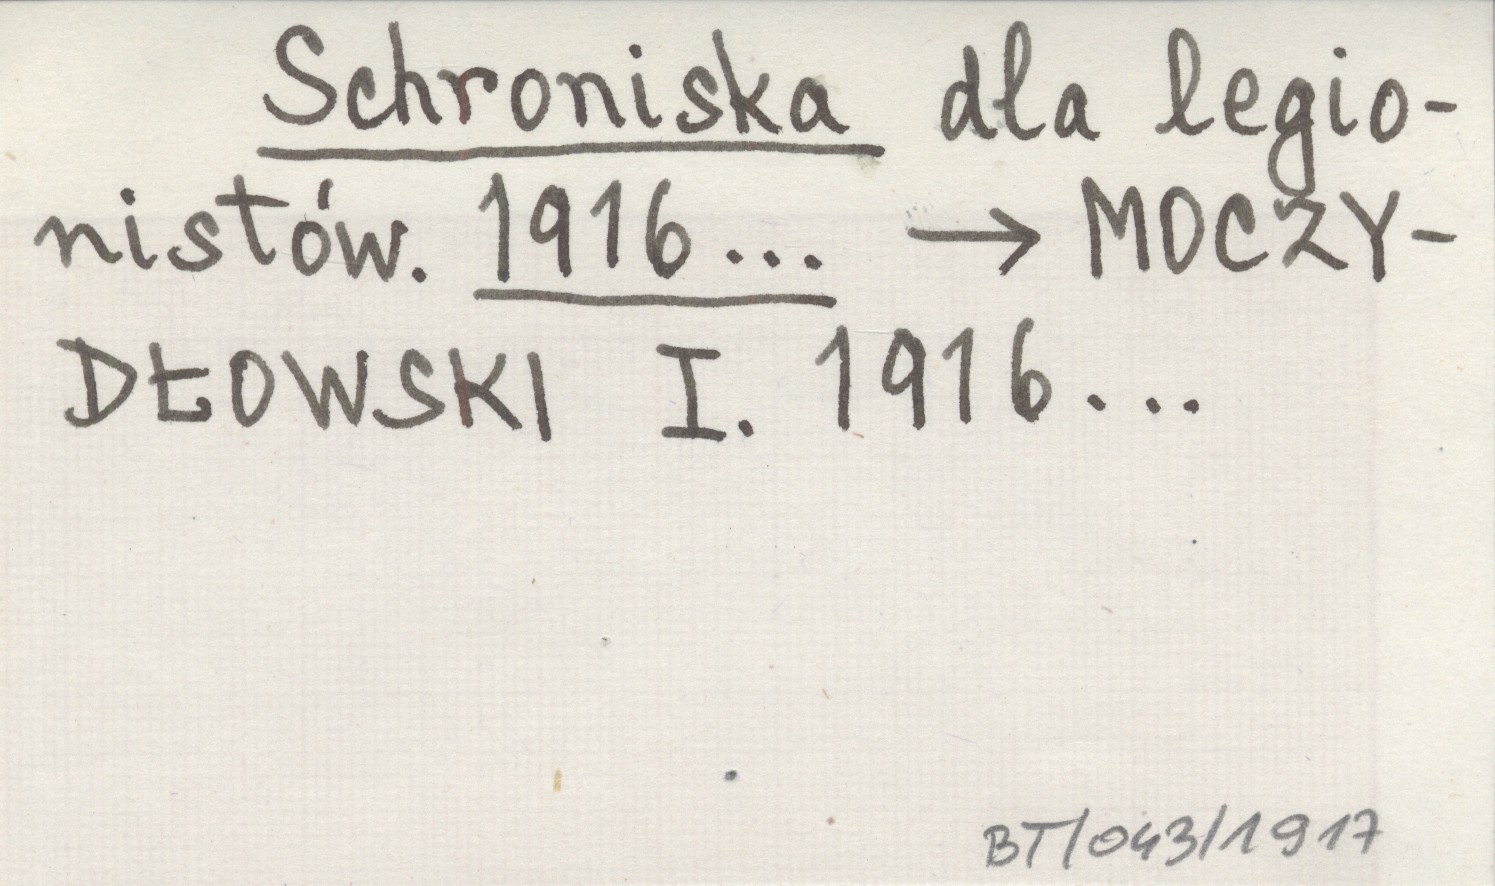 Schroniska dla legio-
nistów. 1916... → MOCZY-
DŁOWSKI I. 1916...
BT/043/1917